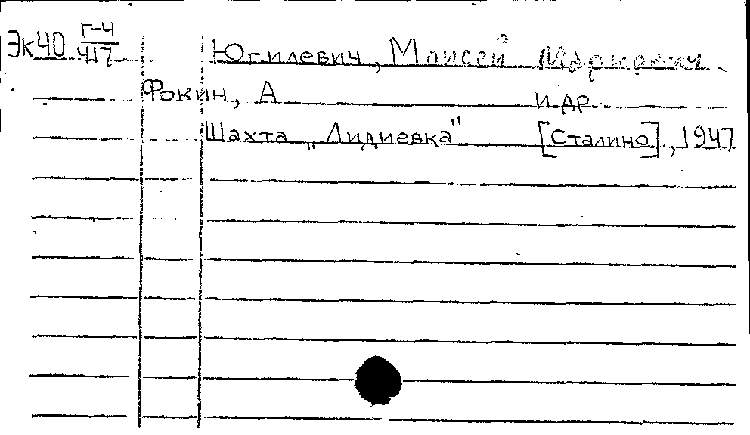 Эк40 Г-4
417
Югилевич, Моисей Маркович
Фокин, А и др
Шахта „Лидиевка" [Сталино], 1947